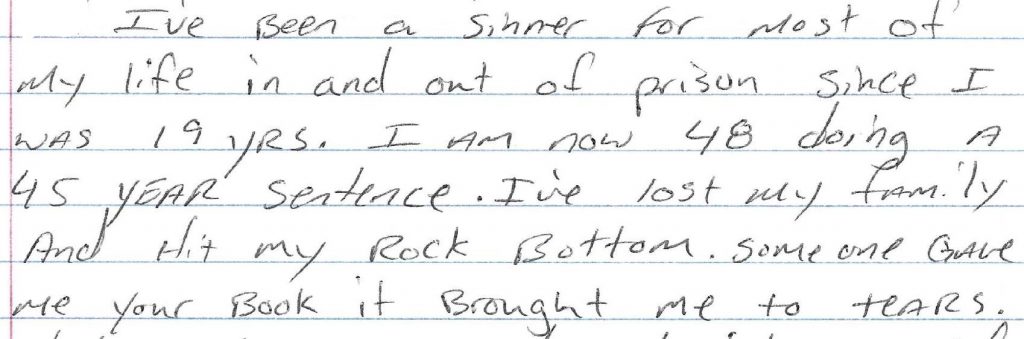 I've Been a sinner for most of
my life in and out of prison since I
WAS 19 YRS. I AM now 48 doing A
45 YEAR Sentence. I've lost my fAmily
And Hit my Rock Bottom. Someone GAVE
me your Book it Brought me to teARS.